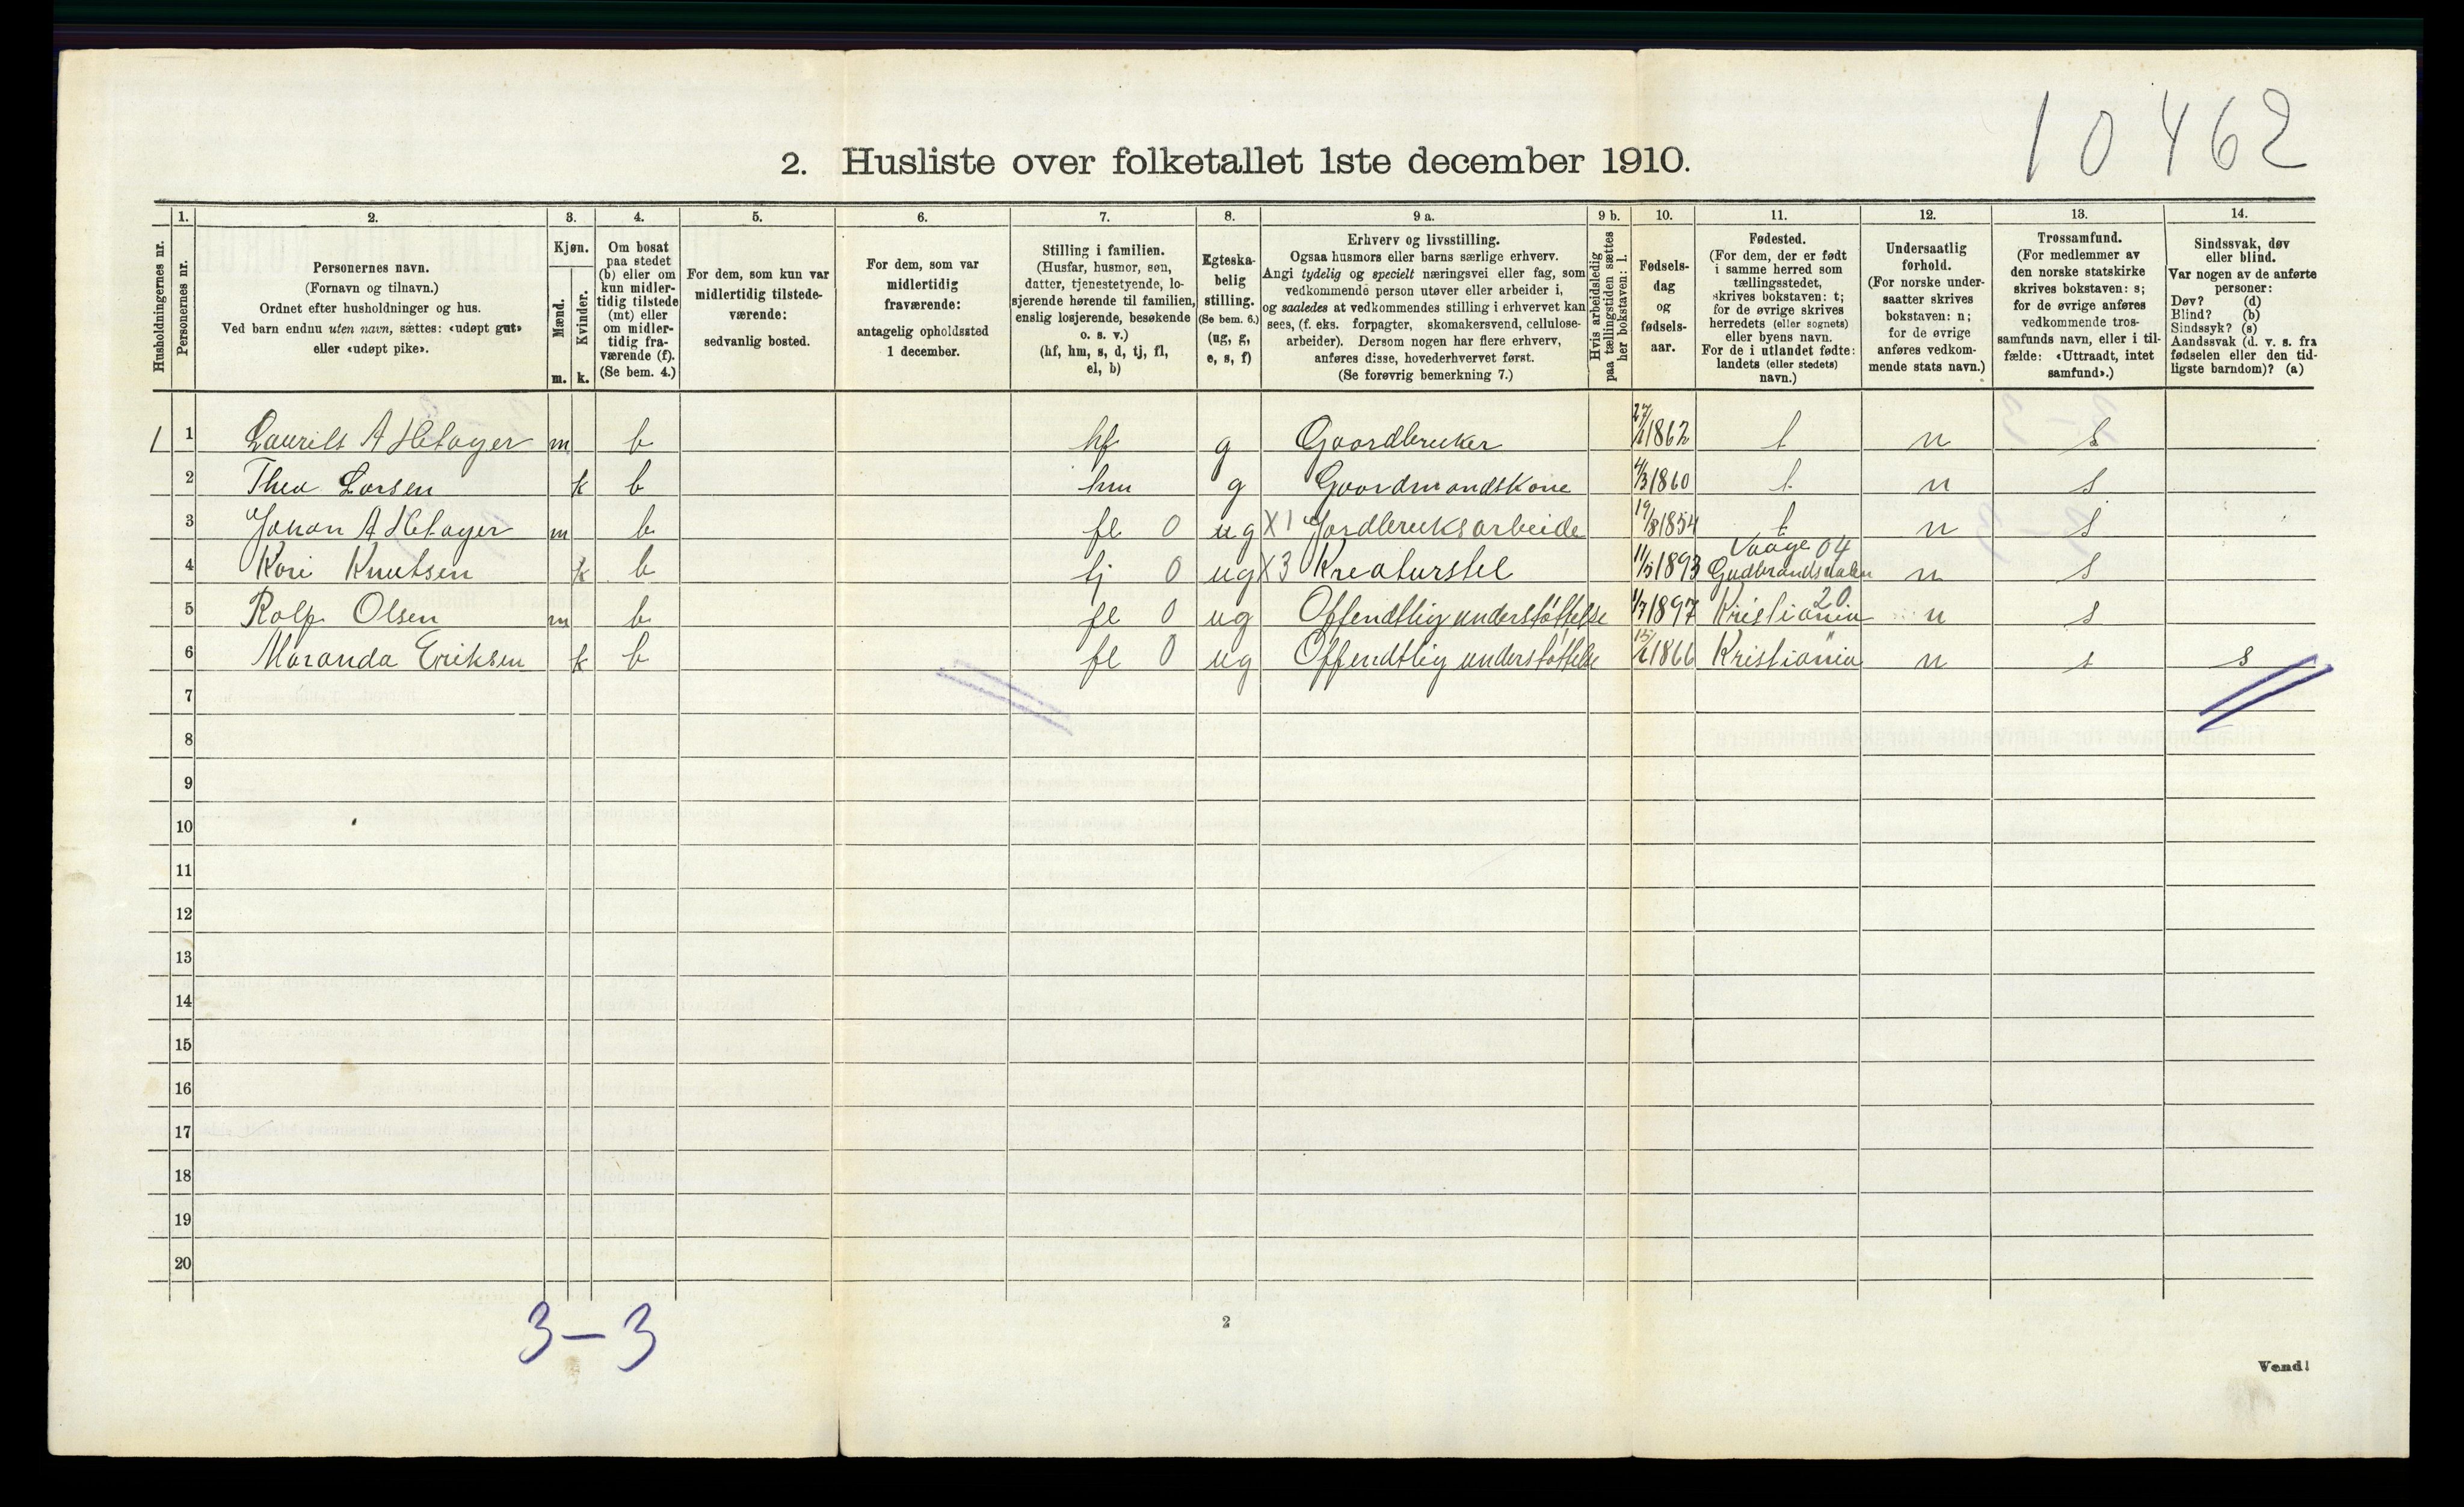 10462
2. Husliste over folketallet 1ste december 1910.
1. 2. 3. 4. 5. 6. 7. 8. 9 a. 9 b. 10. 11. 12. 13. 14.
Husholdningernes nr.
Personernes nr.
Personernes navn.
(Fornavn og tilnavn.)
Ordnet efter husholdninger og hus.
Ved barn endnu uten navn, sættes: «udøpt gut»
eller «udøpt pike».
Kjøn.
Mænd.
Kvinder.
m. k.
Om bosat
paa stedet
(b) eller om
kun midler-
tidig tilstede
(mt) eller
om midler-
tidig fra-
værende (f).
(Se bem. 4.)
For dem, som kun var
midlertidig tilstede-
værende:
sedvanlig bosted.
For dem, som var
midlertidig
fraværende:
antagelig opholdssted
1 december.
Stilling i familien.
(Husfar, husmor, søn,
datter, tjenestetyende, lo-
sjerende hørende til familien,
enslig losjerende, besøkende
o. s. v.)
(hf, hm, s, d, tj, fl,
el, b)
Egteska-
belig
stilling.
(Se bem. 6.)
(ug, g,
e, s, f)
Erhverv og livsstilling.
Ogsaa husmors eller barns særlige erhverv.
Angi tydelig og specielt næringsvei eller fag, som
vedkommende person utøver eller arbeider i,
og saaledes at vedkommendes stilling i erhvervet kan
sees, (f. eks. forpagter, skomakersvend, cellulose-
arbeider). Dersom nogen har flere erhverv,
anføres disse, hovederhvervet først.
(Se forøvrig bemerkning 7.)
Hvis arbeidsledig
paa tællingstiden sættes
her bokstaven: l.
Fødsels-
dag
og
fødsels-
aar.
Fødested.
(For dem, der er født
i samme herred som
tællingsstedet,
skrives bokstaven: t;
for de øvrige skrives
herredets (eller sognets)
eller byens navn.
For de i utlandet fødte:
landets (eller stedets)
navn.)
Undersaatlig
forhold.
(For norske under-
saatter skrives
bokstaven: n;
for de øvrige
anføres vedkom-
mende stats navn.)
Trossamfund.
(For medlemmer av
den norske statskirke
skrives bokstaven: s;
for de øvrige anføres
vedkommende tros-
samfunds navn, eller i til-
fælde: «Uttraadt, intet
samfund».)
Sindssvak, døv
eller blind.
Var nogen av de anførte
personer:
Døv? (d)
Blind? (b)
Sindssyk? (s)
Aandssvak (d. v. s. fra
fødselen eller den tid-
ligste barndom)? (a)
1 1 Laurits A Hetager m b hf g Gaardbruker 1862 t n s
2 Thea Larsen k b hm g Gaardmandskone 4/3 1860 t n s
3 Johan A Hetager m b fl 0 ug X1 Jordbruksarbeide 19/8 1854 t n s
4 Kari Knutsen k b tj 0 ug X3 Kreaturstel 11/5 1893 Vaage 04 Gudbrandsdalen n s
5 Rolf Olsen m b fl 0 ug Offendtlig understøttelse 1/7 1897 Kristiania 20 n s
6 Maranda Eriksen k b fl 0 ug Offendtlig understøttelse 1866 Kristiania " n s s
7
8
9
10
11
12
13
14
15
16
17
18
19
20
3-3
2
Vend!